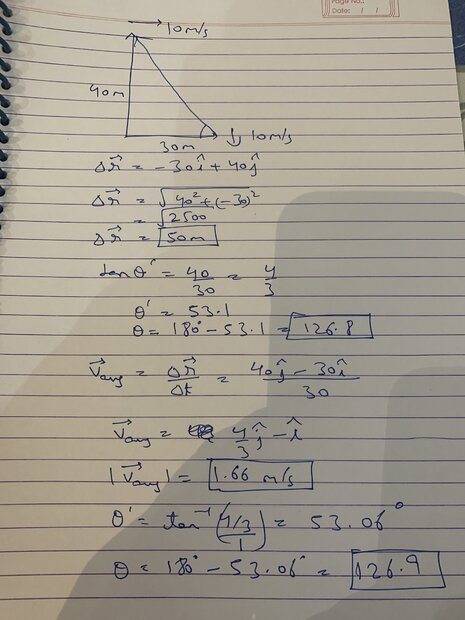 Page No.:
Date: / /
10m/s
40m
30m
10m/s
Δr⃗ = -30î + 40ĵ
Δr⃗ = √40² + (-30)²
= √2500
Δr⃗ = 50m
tan θ' = 40/30 = 4/3
θ' = 53.1
θ = 180° - 53.1 = 126.8
V⃗avg = Δr⃗/Δt = 40ĵ - 30î/30
V⃗avg = 4/3 ĵ - î
|V⃗avg| = 1.66 m/s
θ' = tan⁻¹(4/3/1) = 53.06°
θ = 180° - 53.06° = 126.9